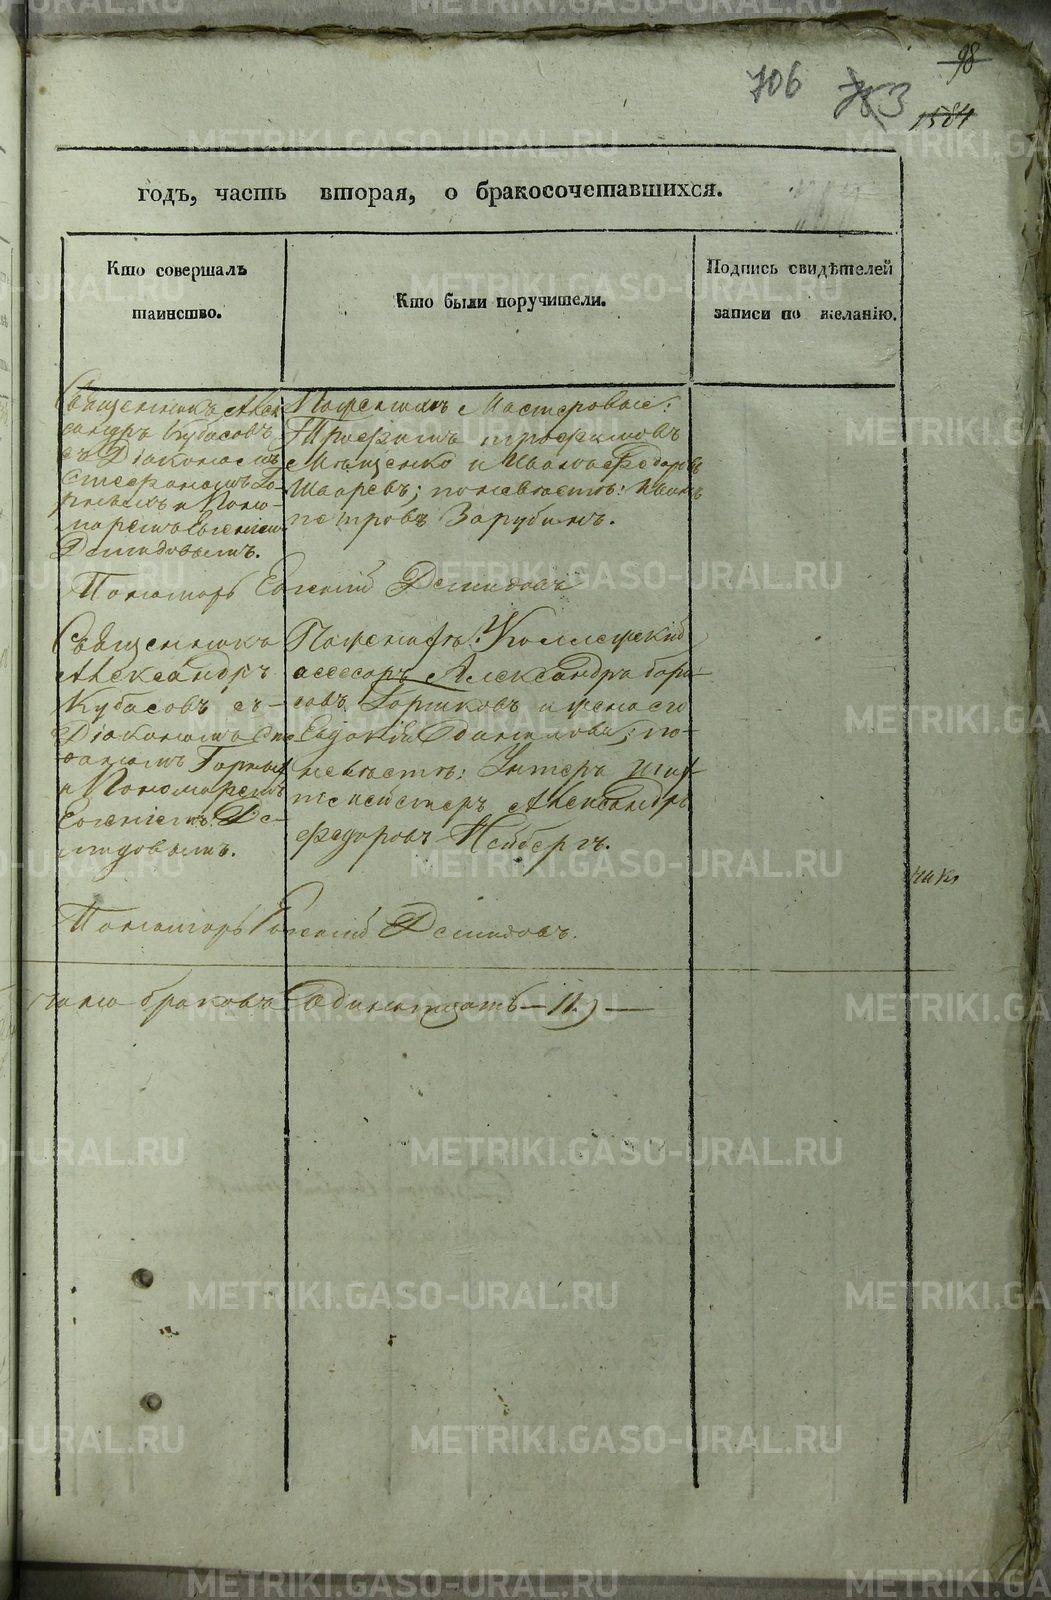 98
706
1584
годъ, часть вторая, о бракосочетавшихся.
Кто совершалъ
таинство.
Кто были поручители.
Подпись свидѣтелей
записи по желанію.
Священникъ Алек
сандръ Кубасовъ
съ Діакономъ
Стефаномъ Го-
рнымъ и Поно-
маремъ Евгеніемъ
Демидовымъ.
По женихѣ Мастеровые:
Трофимъ трофимовъ
и Иванъ Федоровъ
по невѣстѣ: Иванъ
петровъ Зарубинъ.
Пономарь Евгеній Демидовъ
Священникъ
Александръ
Кубасовъ съ
Діакономъ Сте
фаномъ Горнымъ
и Пономаремъ
Евгеніемъ Де-
мидовымъ.
По женихѣ: Коллежскій
асессоръ Александръ бори-
совъ Горшковъ и жена его
Евдокія Данилова; по
невѣстѣ: Унтеръ шихт
мейстеръ Александръ
федоровъ Нейбергъ.
Пономарь Евгеній Демидовъ.
браковъ Одинатцать — 11.) —
METRIKI.GASO-URAL.RU